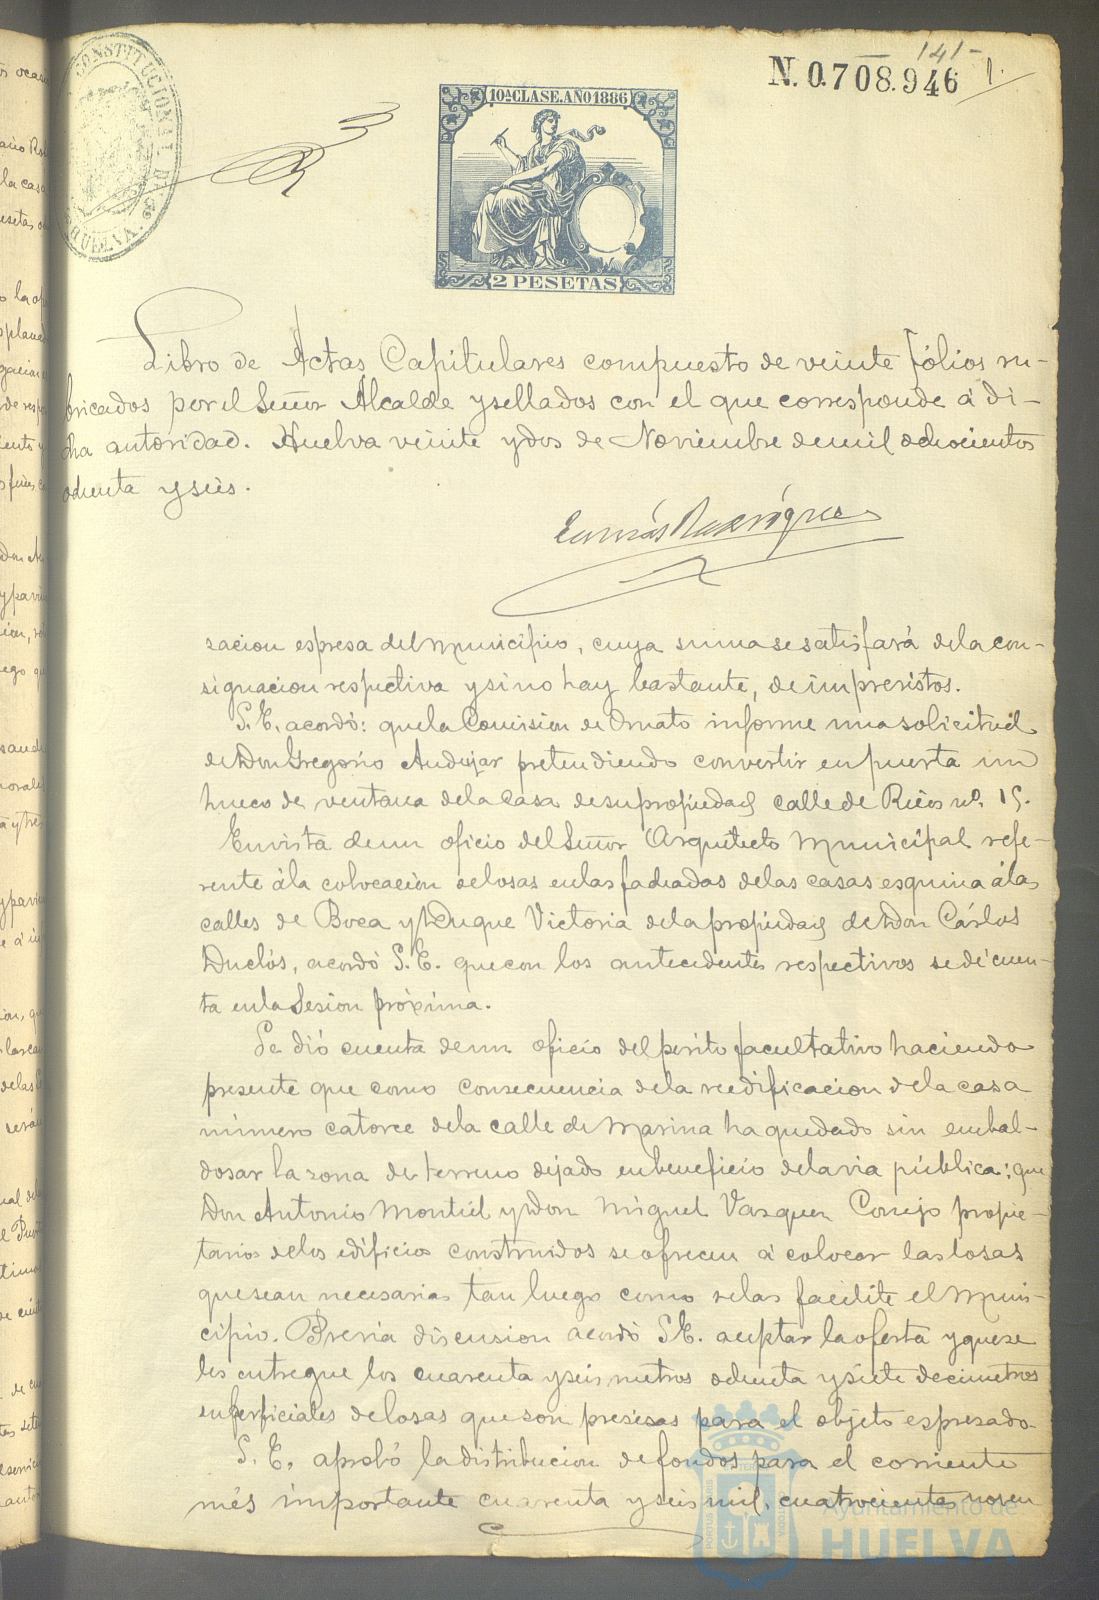 141-
N. 0.708.946 1.
CONSTITUCIONAL DE
HUELVA
10ª CLASE. AÑO 1886
2 PESETAS
Libro de Actas Capitulares compuesto de veinte fólios ru-
bricados por el Señor Alcalde y sellados con el que corresponde á di-
cha autoridad. Huelva veinte y dos de Noviembre de mil ochocientos
ochenta y seis.
sacion espresa del Municipio, cuya suma se satisfará de la con-
signacion respectiva y si no hay bastante, de imprevistos.
S. E. acordó: que la Comision de Ornato informe una solicitud
de Don Gregorio Andujar pretendiendo convertir en puerta un
hueco de ventana de la casa de su propiedad calle de Ricos nº. 15.
En vista de un oficio del Señor Arquitecto Municipal refe-
rente á la colocacion de losas en las fachadas de las casas esquina á las
calles de Boca y Duque Victoria de la propiedad de Don Cárlos
Duclós, acordó S. E. que con los antecedentes respectivos se dé cuen-
ta en la Sesion próxima.
Se dió cuenta de un oficio del perito facultativo haciendo
presente que como consecuencia de la reedificacion de la casa
número catorce de la calle de Marina ha quedado sin embal-
dosar la zona de terreno dejado en beneficio de la via pública: que
Don Antonio Montiel y Don Miguel Vazquez Conejo propie-
tarios de los edificios construidos se ofrecen á colocar las losas
que sean necesarias tan luego como se las facilite el Muni-
cipio. Prévia discusion acordó S. E. aceptar la oferta y que se
les entregue los cuarenta y seis metros ochenta y siete decimetros
superficiales de losas que son presisas para el objeto espresado.
S. E. aprobó la distribucion de fondos para el corriente
més importante cuarenta y seis mil, cuatrocientos noven
Ayuntamiento de
HUELVA